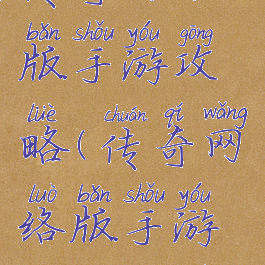 bǎn shǒu yóu gōng
版手游攻
lüè chuán qí wǎng
略(传奇网
luò bǎn shǒu yóu
络版手游